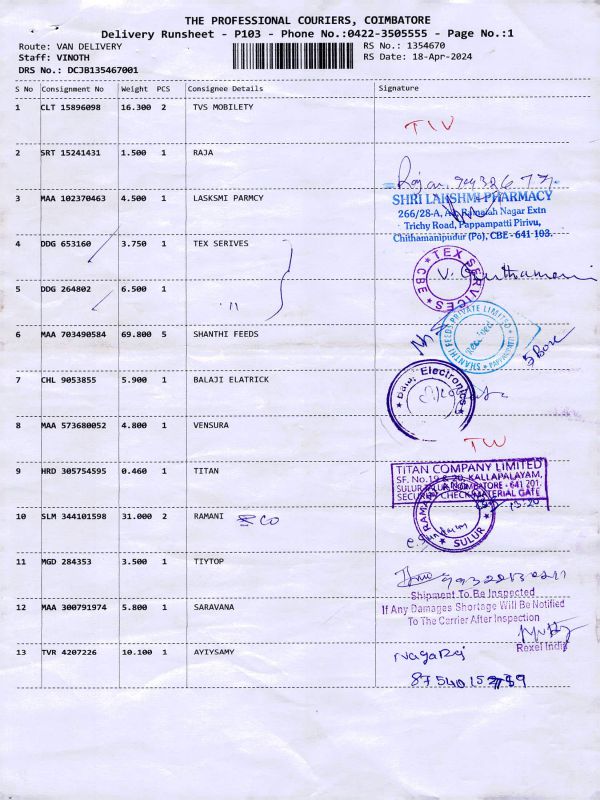 THE PROFESSIONAL COURIERS, COIMBATORE
Delivery Runsheet - P103 - Phone No.:0422-3505555 - Page No.:1
Route: VAN DELIVERY RS No.: 1354670
Staff: VINOTH RS Date: 18-Apr-2024
DRS No.: DCJB135467001
S No Consignment No Weight PCS Consignee Details Signature
1 CLT 15896098 16.300 2 TVS MOBILETY
2 SRT 15241431 1.500 1 RAJA
3 MAA 102370463 4.500 1 LASKSMI PARMCY
SHRI LAKSHMI PHARMACY
266/28-A, Ramaiah Nagar Extn
Trichy Road, Pappampatti Pirivu,
Chithamanipudur (Po), CBE - 641 103.
4 DDG 653160 3.750 1 TEX SERIVES
TEX SERVICES CBE
5 DDG 264802 6.500 1
6 MAA 703490584 69.800 5 SHANTHI FEEDS
SHANTHI FEEDS PRIVATE LIMITED
Received
5 Box
7 CHL 9053855 5.900 1 BALAJI ELATRICK
Balaji Electronics
8 MAA 573680052 4.800 1 VENSURA
9 HRD 305754595 0.460 1 TITAN
TITAN COMPANY LIMITED
SF. No.19 & 20, KALLAPALAYAM,
SULUR TALUK, COIMBATORE - 641 201.
SECURITY CHECK MATERIAL GATE
15:20
10 SLM 344101598 31.000 2 RAMANI
SULUR
11 MGD 284353 3.500 1 TIYTOP
12 MAA 300791974 5.800 1 SARAVANA
Shipment To Be Inspected
If Any Damages Shortage Will Be Notified
To The Carrier After Inspection
Rexel India
13 TVR 4207226 10.100 1 AYIYSAMY
Nagaraj